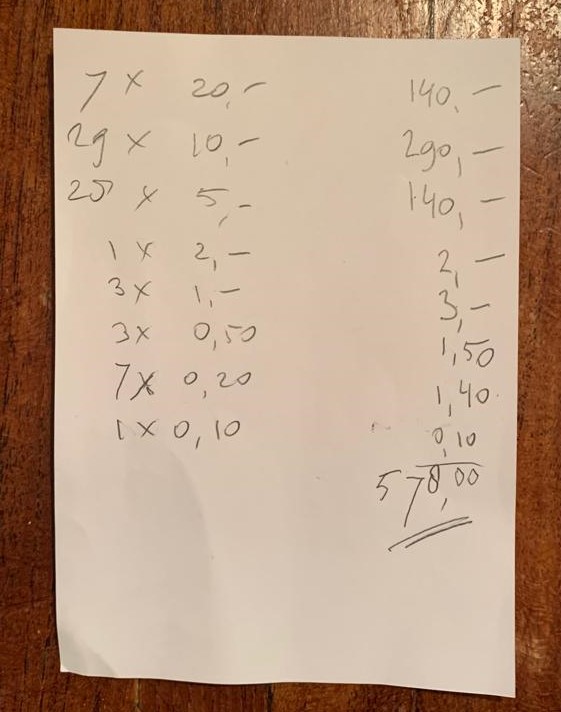 7 x 20,- 140,-
29 x 10,- 290,-
28 x 5,- 140,-
1 x 2,- 2,-
3 x 1,- 3,-
3 x 0,50 1,50
7 x 0,20 1,40
1 x 0,10 0,10
578,00